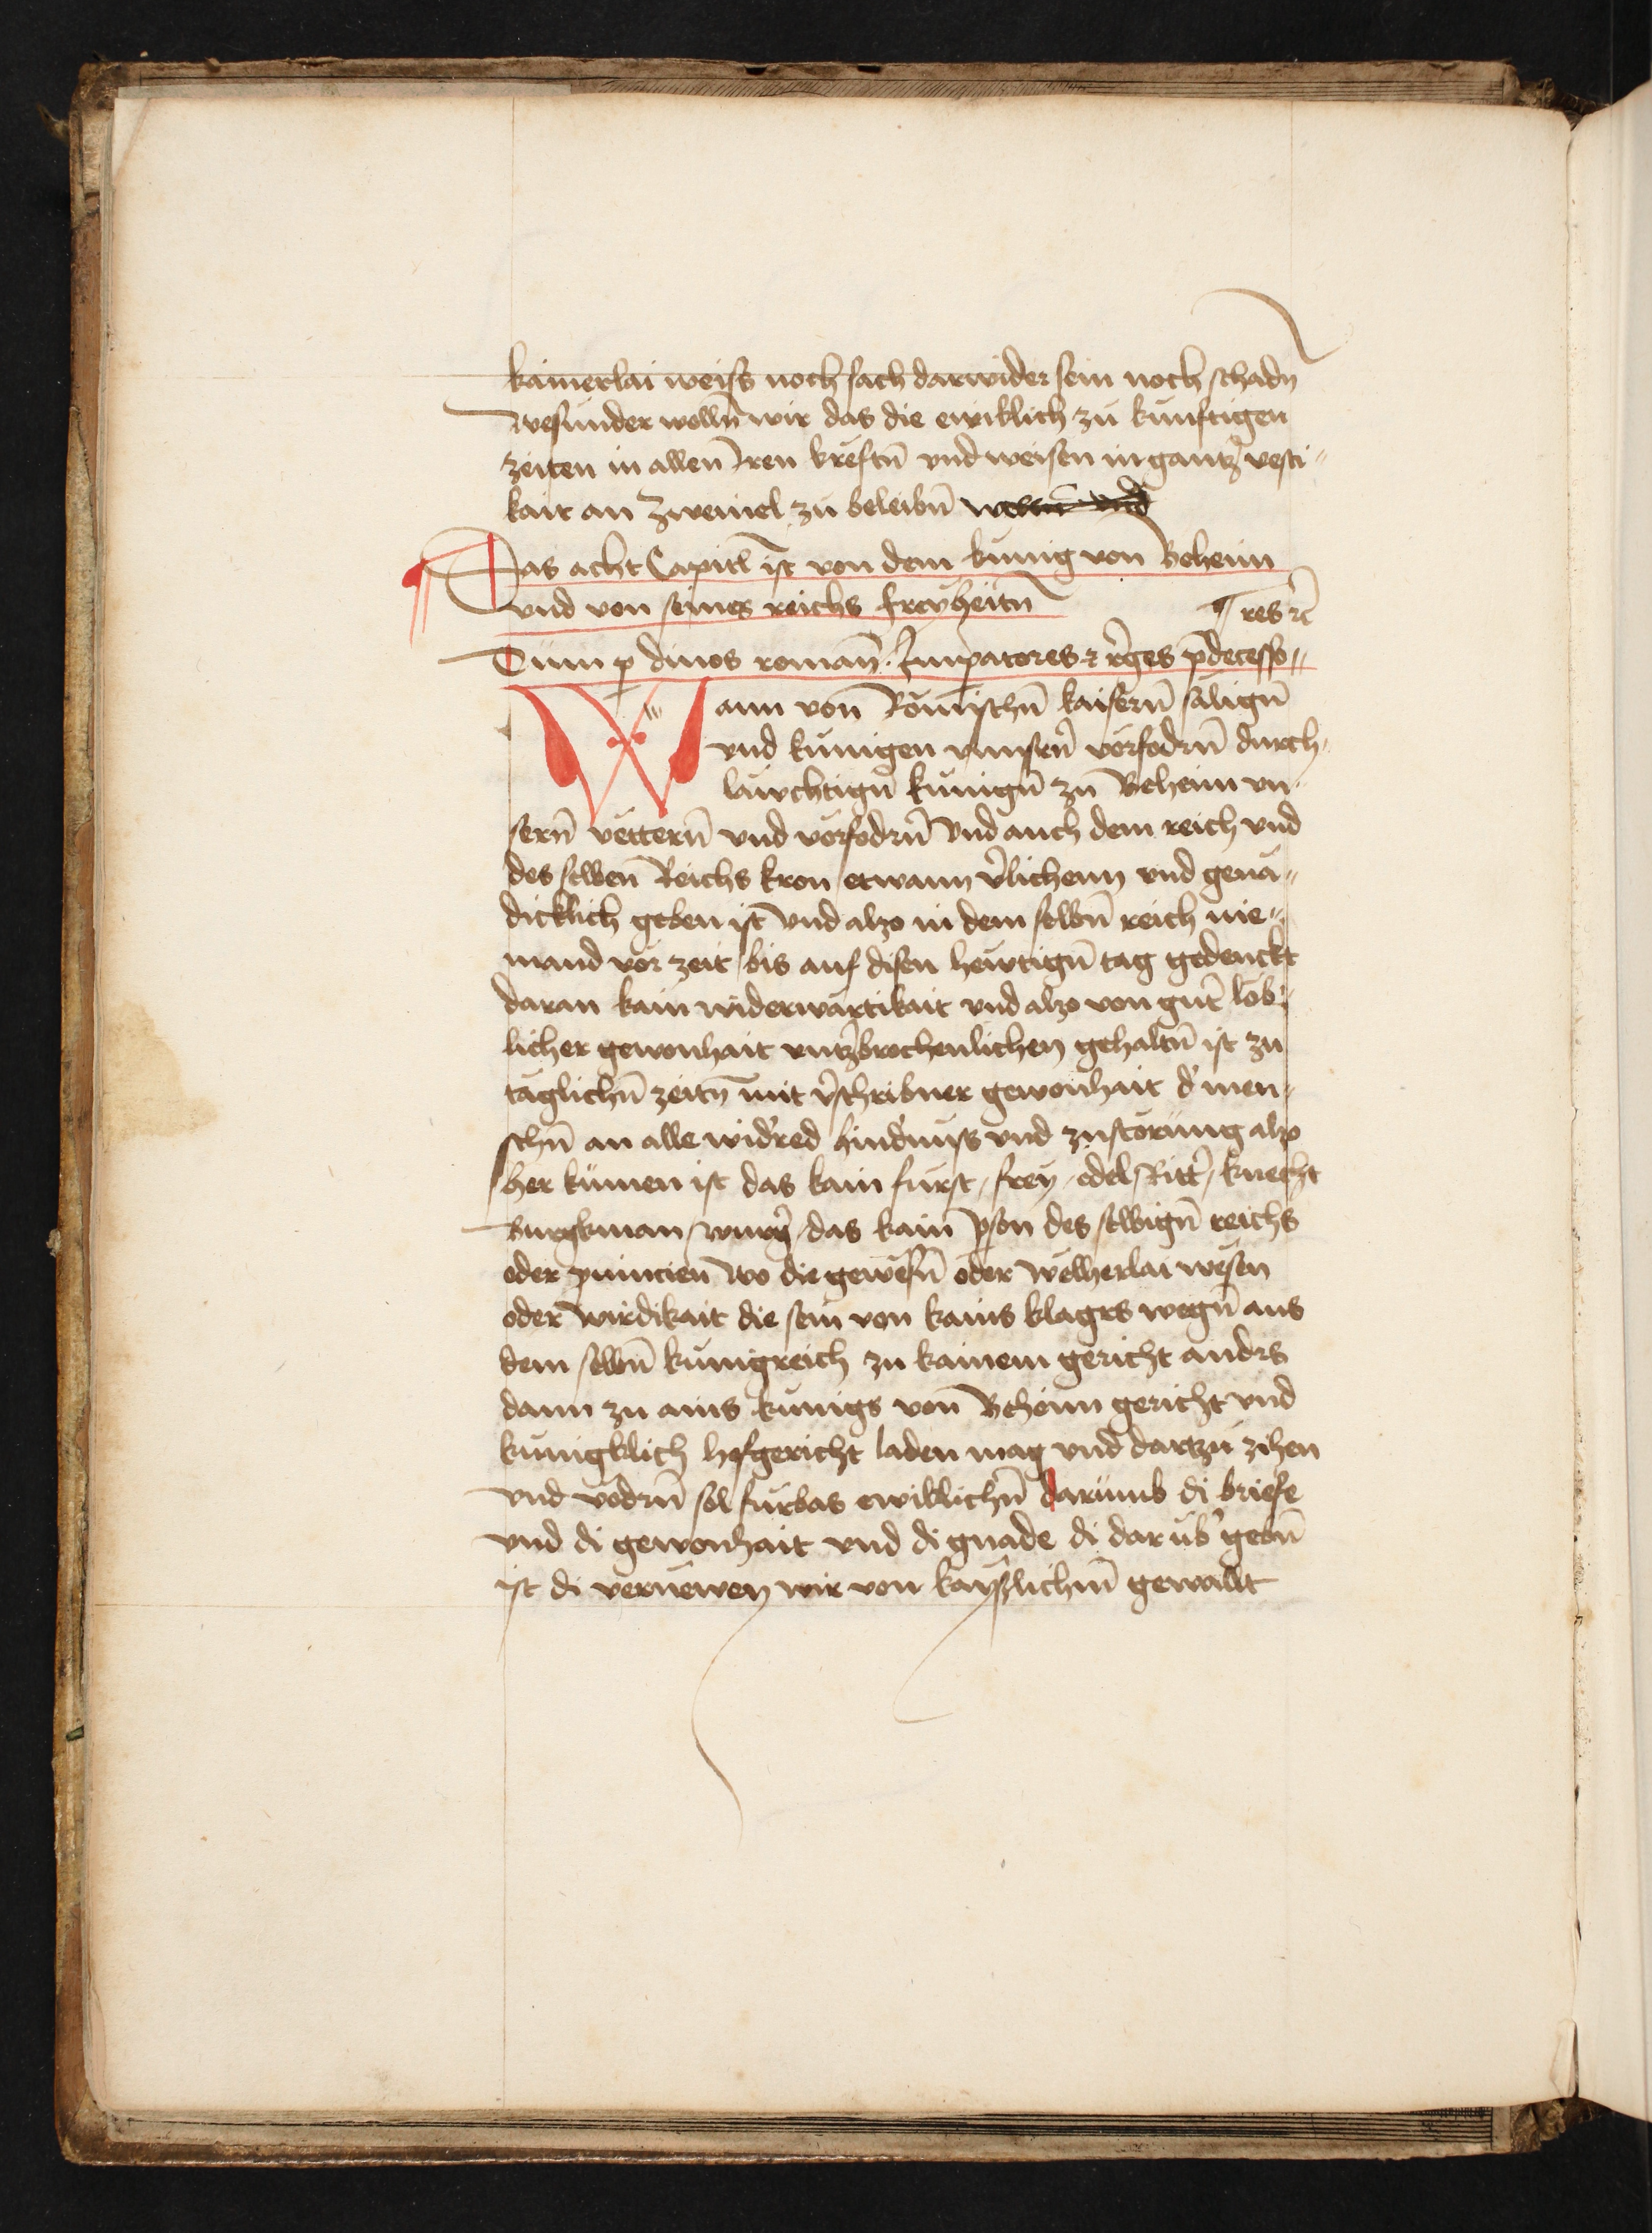 kainerlai weiss noch sach darwider sein noch schadn
wesunder wolln̄ wir das die ewiklich zu kunftigen
zeiten in allen Iren kreftn̄ vnd weisen in gantz vesti„
kait an zweiuel zu beleibn̄
Das acht Capitl ist von dem kunig von Beheim
vnd von seines reichs freyheitn̄
¶ res ⁊c̄
Cum p diuos roman̄. Impatores ⁊ r̄ges p̄decesso„
Wann von Römischn̄ kaisern̄ sälign̄
vnd kunigen vnnsern̄ vorfodrn̄ durch„
läwchtign̄ kunign̄ zu Beheim vn„
sern̄ vettern̄ vnd vorfodrn̄ vnd auch dem reich vnd
des selben Reichs kron etwann v̄lichenn vnd genä„
dicklich geben ist vnd also in dem selbn̄ reich nie„
mand vor zeit bis auf disen hewtign̄ tag gedenckt
daran kain widerwärtikait vnd also von gut̄ löb„
licher gewonhait vntzbrochenlichen gehaltn̄ ist zu
täglichn̄ zeitn̄ mit v̄schribner gewonhait d' men„
schn̄ an alle wid'red hind'nuss vnd zustörung also
her kumen ist das kain furst, frey, edel, Ritt', knecht
burgkman, das kain pson des selbign̄ reichs
oder puincien wo die gewesn̄ oder welherlai wesen
oder wirdikait die sein von kains klagrs wegn̄ aus
dem selbn̄ kunigreich zu kainem gericht andrs
dann zu ains kunigs von Beheim gericht vnd
kunigklich hofgericht laden mag vnd dartzu zihen
vnd vodrn̄ sol furbas ewiklichn̄ darumb di briefe
vnd di gewonhait vnd di gnade di dar üb' gebn̄
ist di vernewen wir von kayslichm̄ gewallt